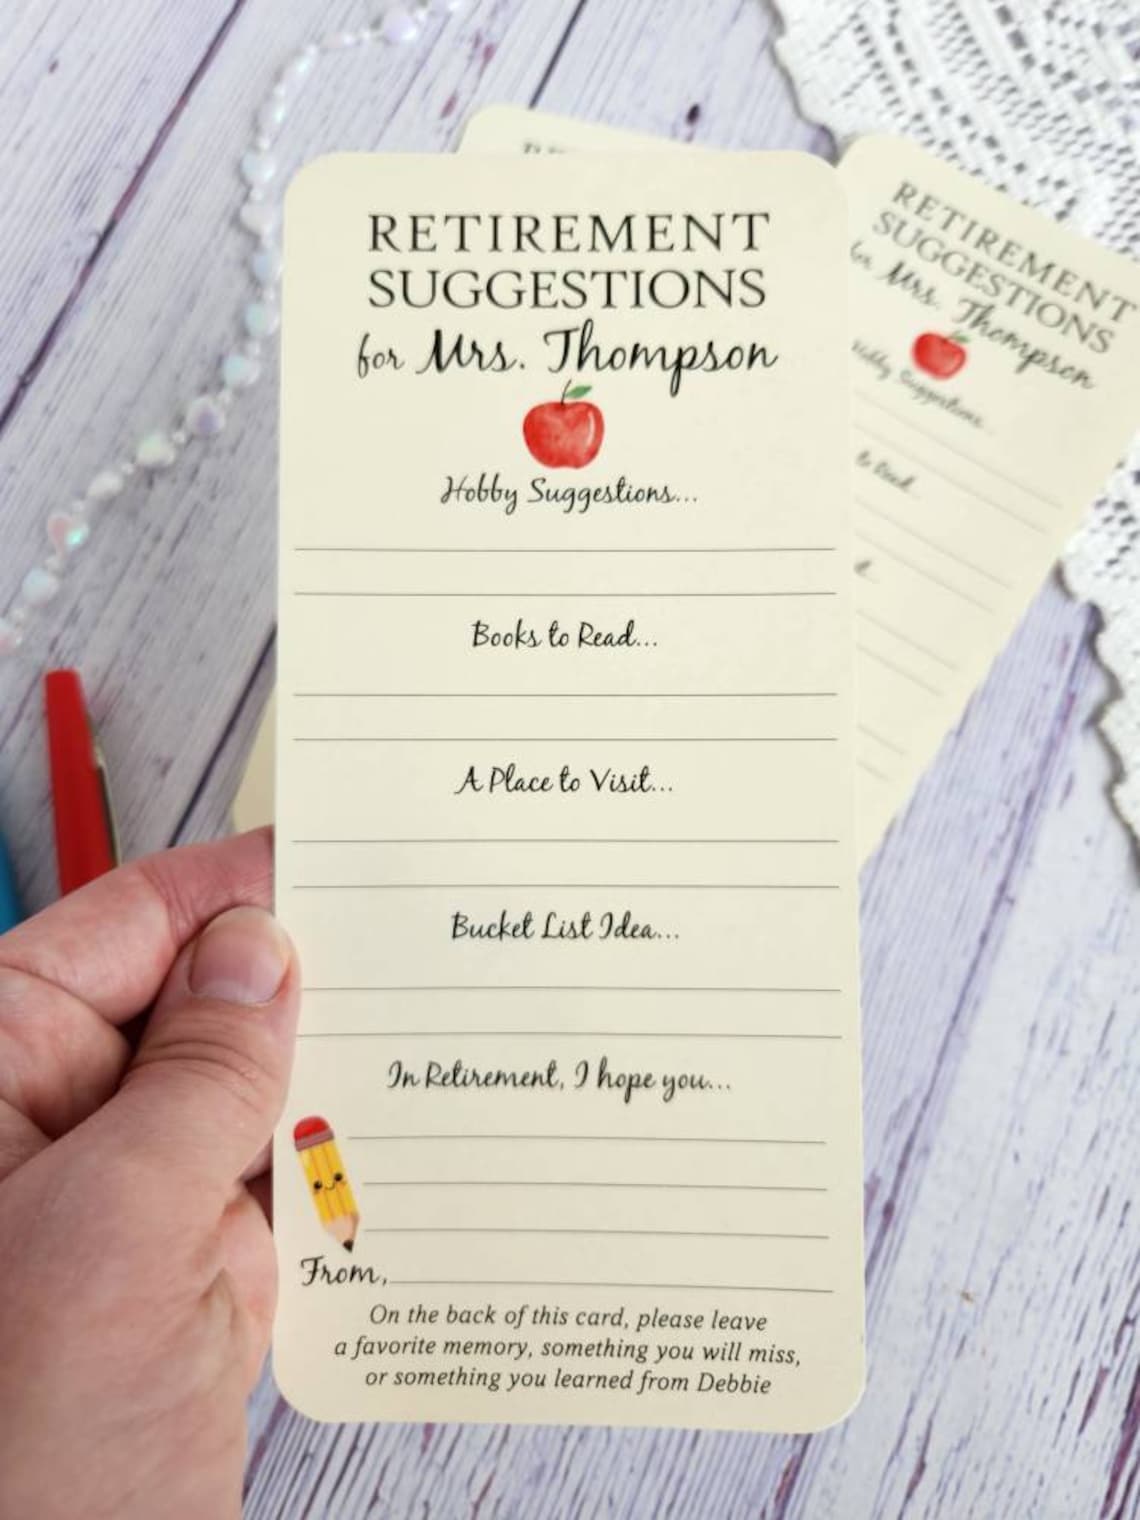 RETIREMENT
SUGGESTIONS
for Mrs. Thompson
Hobby Suggestions...
Books to Read...
A Place to Visit...
Bucket List Idea...
In Retirement, I hope you...
From,
On the back of this card, please leave
a favorite memory, something you will miss,
or something you learned from Debbie
RETIREMENT
SUGGESTIONS
for Mrs. Thompson
Hobby Suggestions...
to Read...